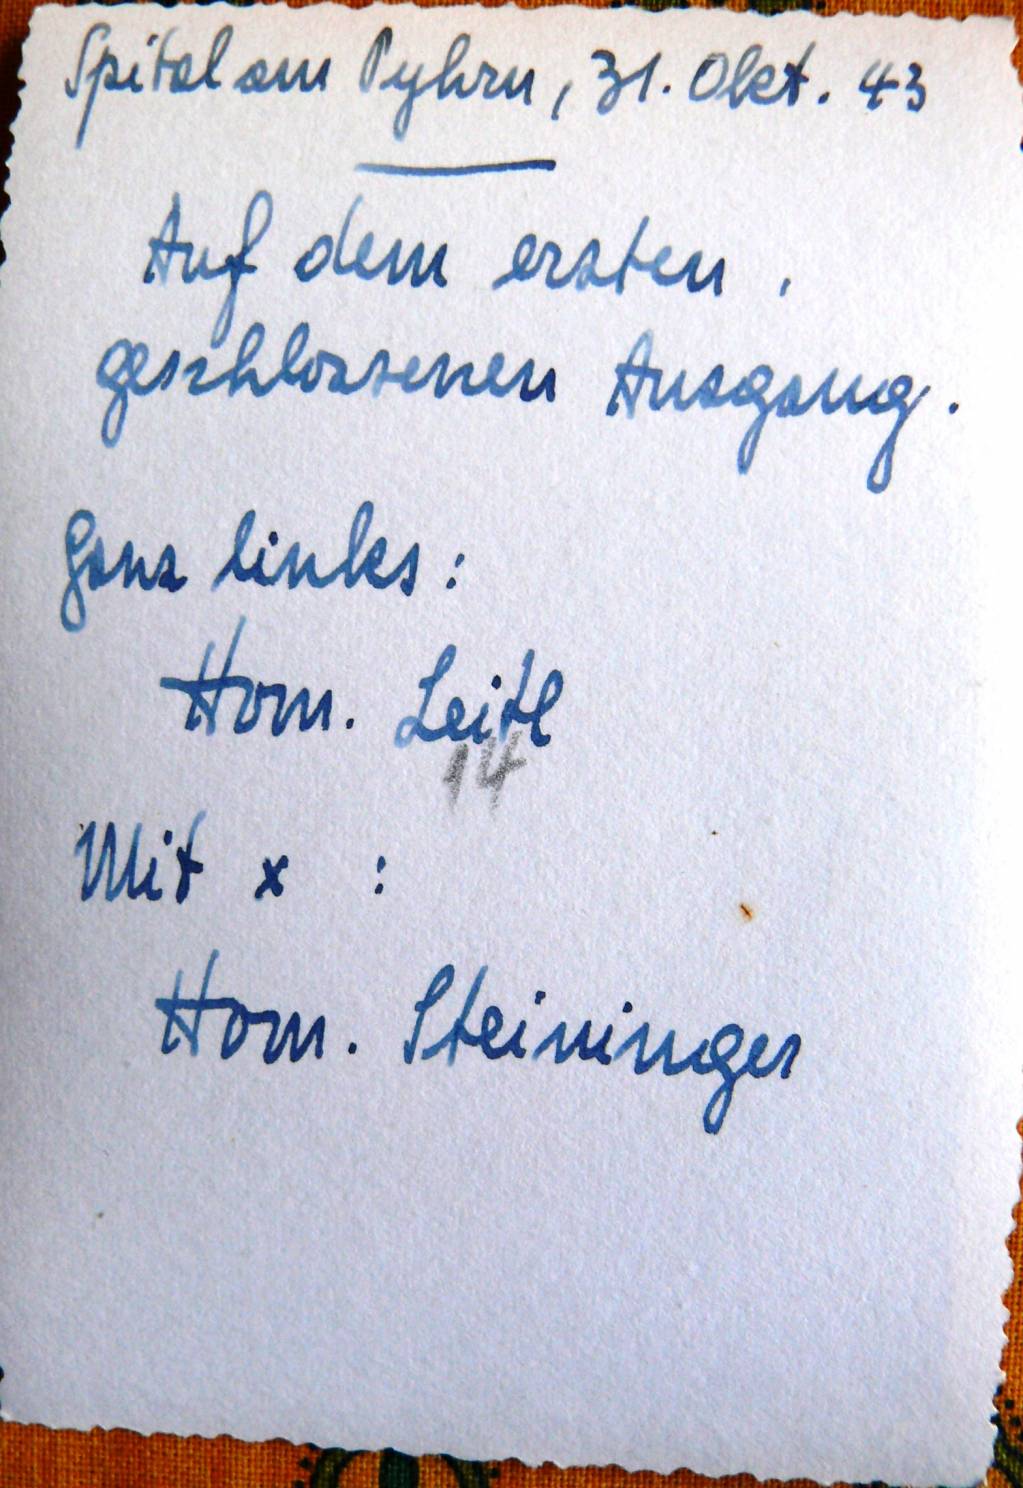 Spital am Pyhrn, 31. Okt. 43
Auf dem ersten,
geschlossenen Ausgang.
Ganz links:
Hom. Leitl
14
Mit x :
Hom. Steininger